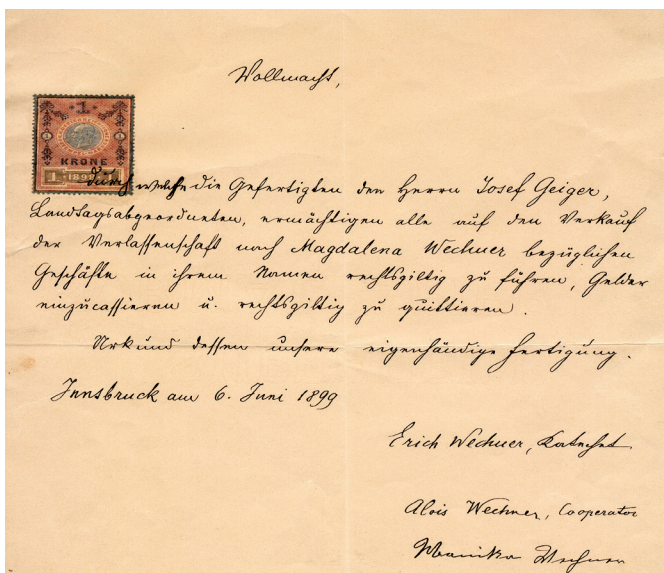 Vollmacht,
1
KRONE
1 1898
durch welche die Gefertigten den Herrn Josef Geiger,
Landtagsabgeordneten, ermächtigen alle auf den Verkauf
der Verlassenschaft nach Magdalena Wechner bezüglichen
Geschäfte in ihrem Namen rechtsgiltig zu führen, Gelder
einzucassieren u. rechtsgiltig zu quittieren.
Urkund dessen unsere eigenhändige Fertigung.
Innsbruck am 6. Juni 1899
Erich Wechner, Katechet.
Alois Wechner, Cooperator
Monika Wechner